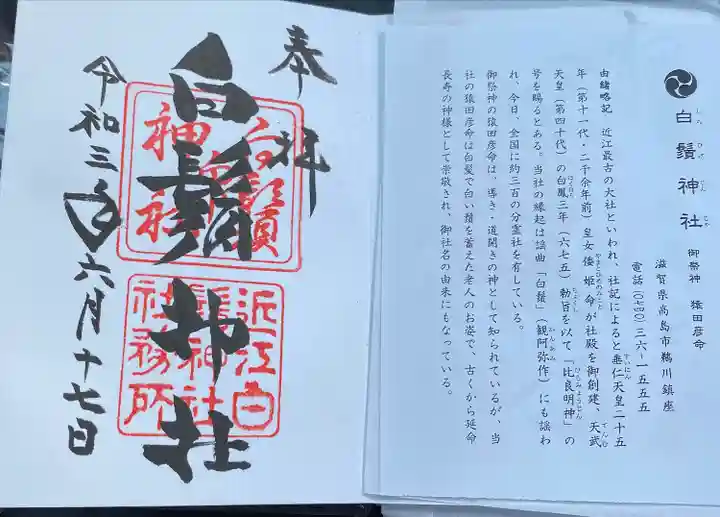 白鬚神社
しらひげじんじゃ
御祭神 猿田彦命
滋賀県高島市鵜川鎮座
電話(〇七四〇)三六-一五五五
由緒略記 近江最古の大社といわれ、社記によると垂仁天皇二十五
年(第十一代・二千余年前)皇女倭姫命が社殿を御創建、天武
天皇(第四十代)の白鳳三年(六七五)勅旨を以て「比良明神」の
号を賜るとある。当社の縁起は謡曲「白鬚」(観阿弥作)にも謡わ
れ、今日、全国に約三百の分霊社を有している。
御祭神の猿田彦命は、導き・道開きの神として知られているが、当
社の猿田彦命は白髪で白い鬚を蓄えた老人のお姿で、古くから延命
長寿の神様として崇敬され、御社名の由来にもなっている。
奉拝
白鬚神社
令和三年六月十七日
白鬚
神社
近江白
鬚神社
社務所